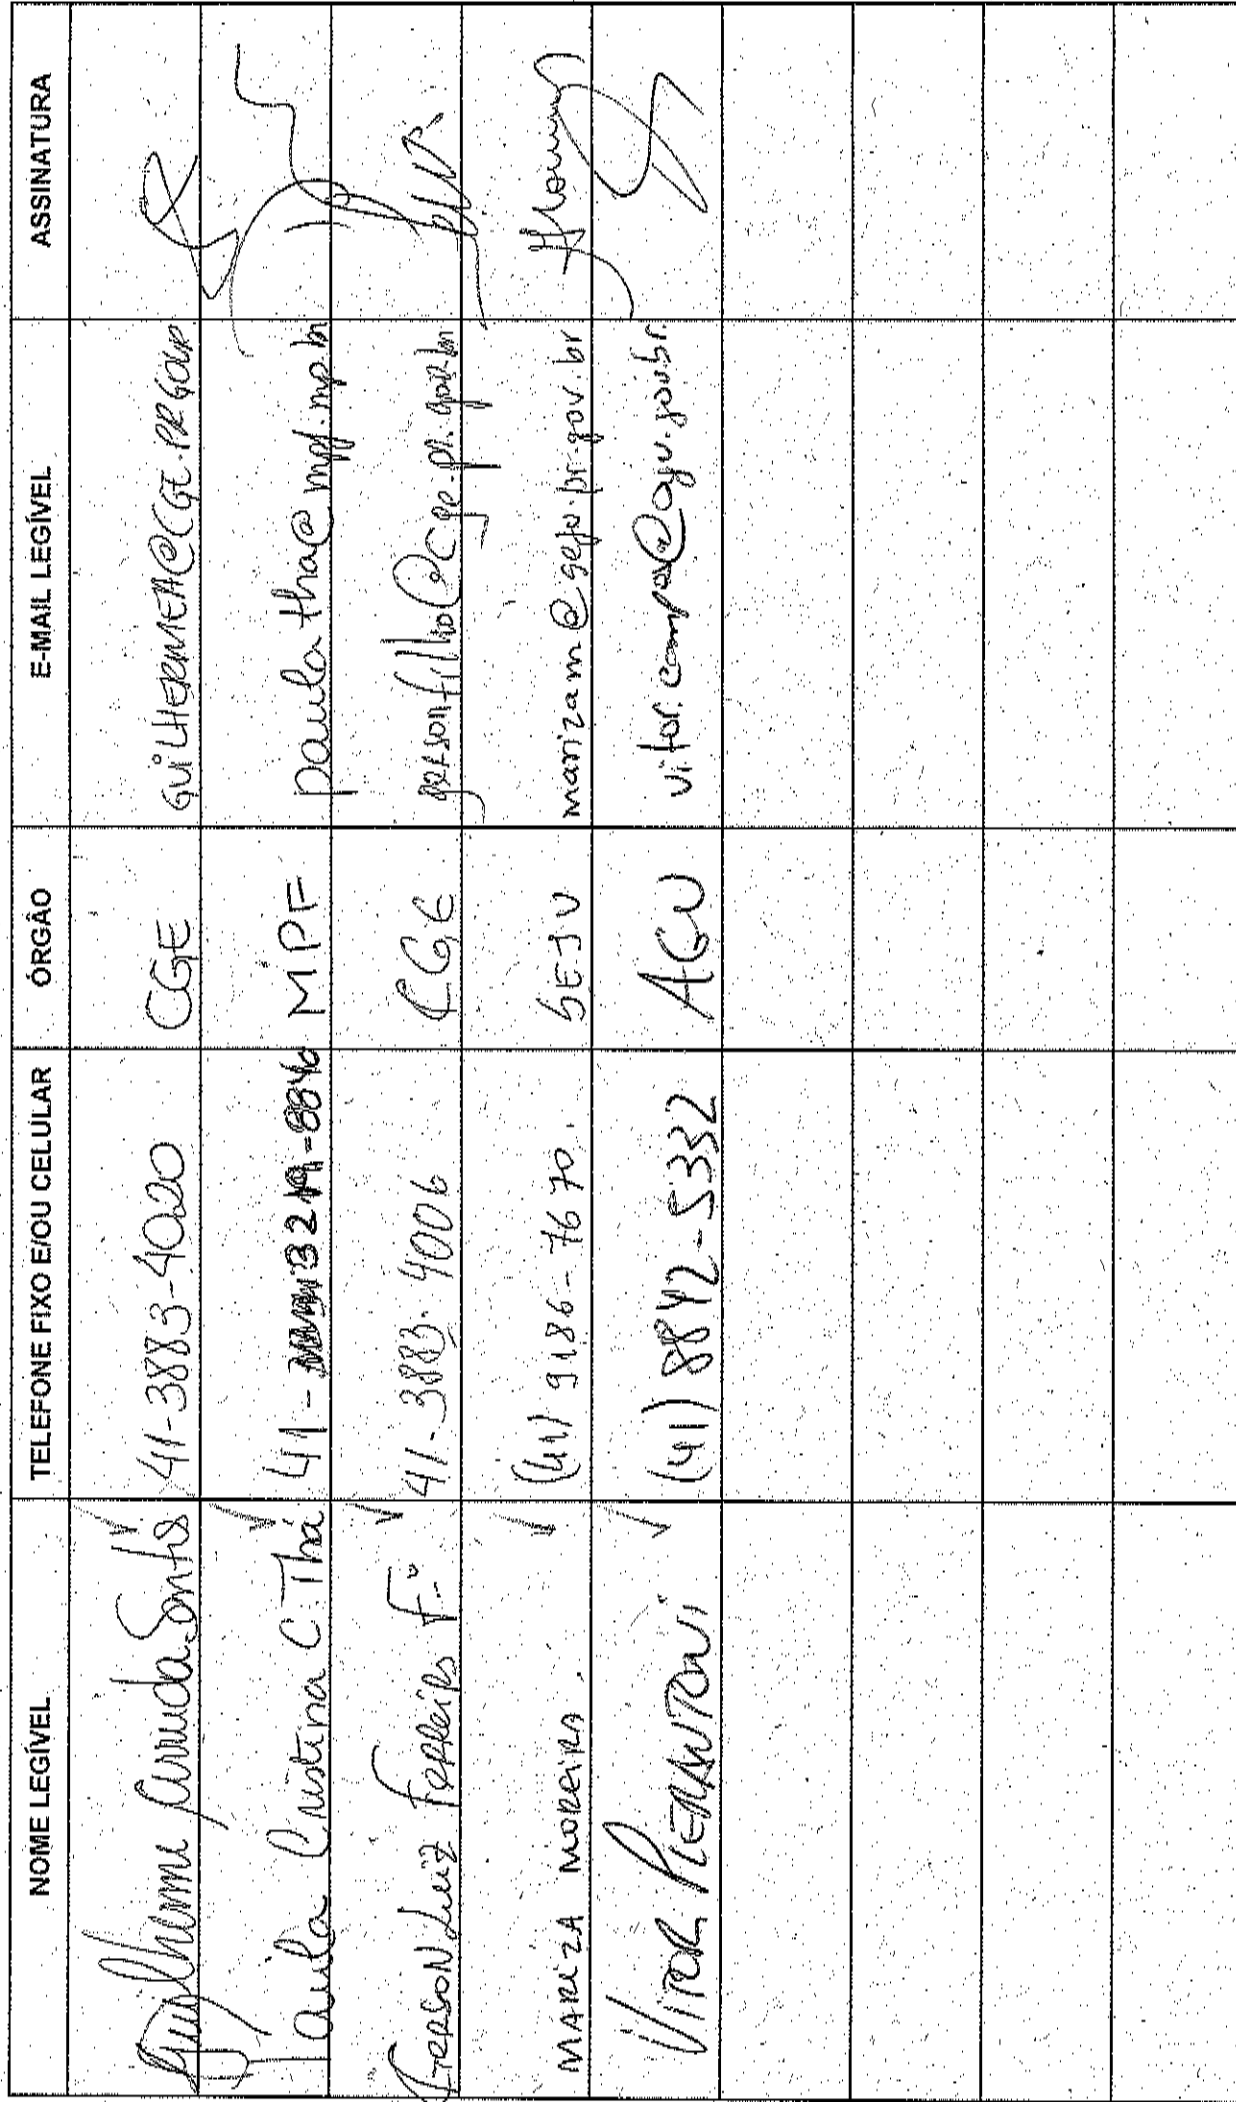 NOME LEGÍVEL TELEFONE FIXO E/OU CELULAR ÓRGÃO E-MAIL LEGÍVEL ASSINATURA
Guilherme Arruda Santos 41-3883-4020 CGE GUILHERMEA@CGE.PR.GOV.BR
Paula Cristina C. Thá 41- 3219-8846 MPF paulatha@mpf.mp.br
GERSON Luiz FERREIRA F.º 41-3883-4006 CGE gersonfilho@cge.pr.gov.br
MARIZA MOREIRA. (41) 9186-7670. SEJU marizam@seju.pr.gov.br
VITOR PIERANTONI (41) 8842-5332 AGU vitor.campos@agu.gov.br